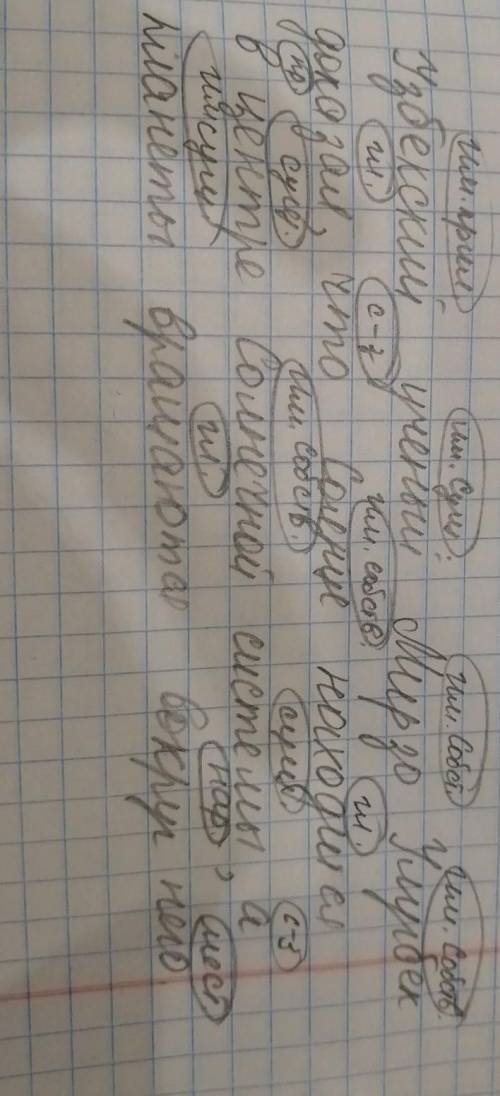 им. прил. им. сущ. им. собст. им. собств.
Узбекский ученый Мирзо Улугбек
гл. с-з им. собств. гл.
доказал, что Солнце находится
пр сущ. им. собств. сущ с-з
в центре Солнечной системы, а
гл. нар мест
планеты вращаются вокруг него.